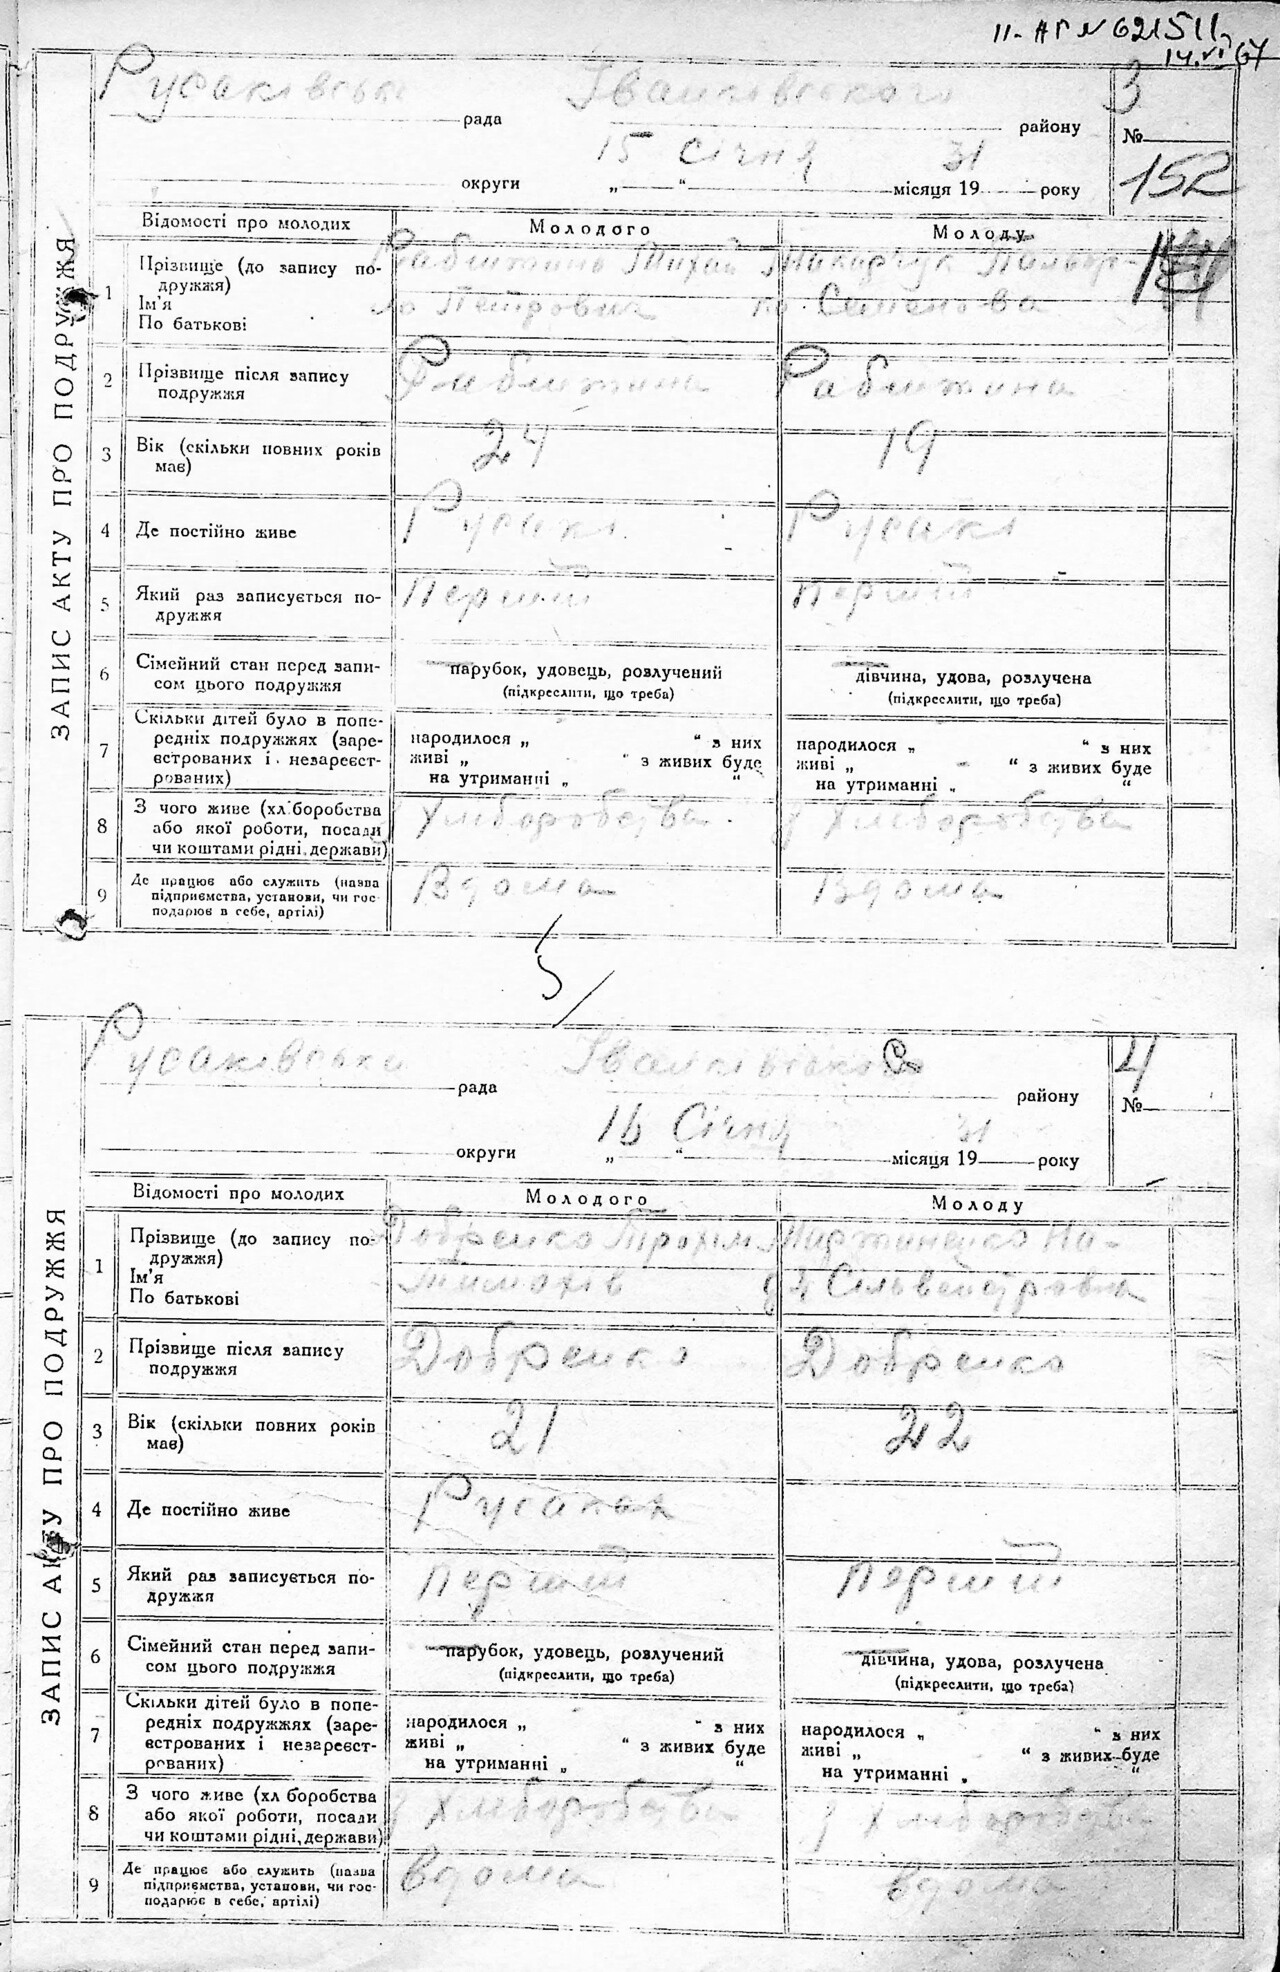 II-АГ № 621511,
14.VI 67
ЗАПИС АКТУ ПРО ПОДРУЖЖЯ
Русаківська рада Іванківського району
3
№
округи „15“ Січня місяця 1931 року
152
Відомості про молодих Молодого Молоду
1 Прізвище (до запису подружжя)
Ім'я
По батькові
Михай Макарчук
ло Петрович Семенова
2 Прізвище після запису
подружжя
Рабижина
3 Вік (скільки повних років
має)
24 19
4 Де постійно живе Русаки Русаки
5 Який раз записується по-
дружжя
перший перший
6 Сімейний стан перед запи-
сом цього подружжя
парубок, удовець, розлучений дівчина, удова, розлучена
(підкреслити, що треба) (підкреслити, що треба)
7 Скільки дітей було в попе-
редніх подружжях (заре-
єстрованих і незареєст-
рованих)
народилося „ “ з них народилося „ “ з них
живі „ “ з живих буде живі „ “ з живих буде
на утриманні „ “ на утриманні „ “
8 З чого живе (хліборобства
або якої роботи, посади
чи коштами рідні, держави)
Хліборобства З Хліборобства
9 Де працює або служить (назва
підприємства, установи, чи гос-
подарює в себе, артілі)
Вдома Вдома
5
ЗАПИС АКТУ ПРО ПОДРУЖЖЯ
Русаківська рада Іванківського району
4
№
округи „16“ Січня місяця 1931 року
Відомості про молодих Молодого Молоду
1 Прізвище (до запису по-
дружжя)
Ім'я
По батькові
Добренко Трохим Мартиненко На-
Тимохів дя Сільвестровна
2 Прізвище після запису
подружжя
Добренко Добренко
3 Вік (скільки повних років
має)
21 22
4 Де постійно живе Русаках
5 Який раз записується по-
дружжя
перший перший
6 Сімейний стан перед запи-
сом цього подружжя
парубок, удовець, розлучений дівчина, удова, розлучена
(підкреслити, що треба) (підкреслити, що треба)
7 Скільки дітей було в попе-
редніх подружжях (заре-
єстрованих і незареєст-
рованих)
народилося „ “ з них народилося „ “ з них
живі „ “ з живих буде живі „ “ з живих буде
на утриманні „ “ на утриманні „ “
8 З чого живе (хліборобства
або якої роботи, посади
чи коштами рідні, держави)
З Хліборобства З Хліборобства
9 Де працює або служить (назва
підприємства, установи, чи гос-
подарює в себе, артілі)
Вдома вдома